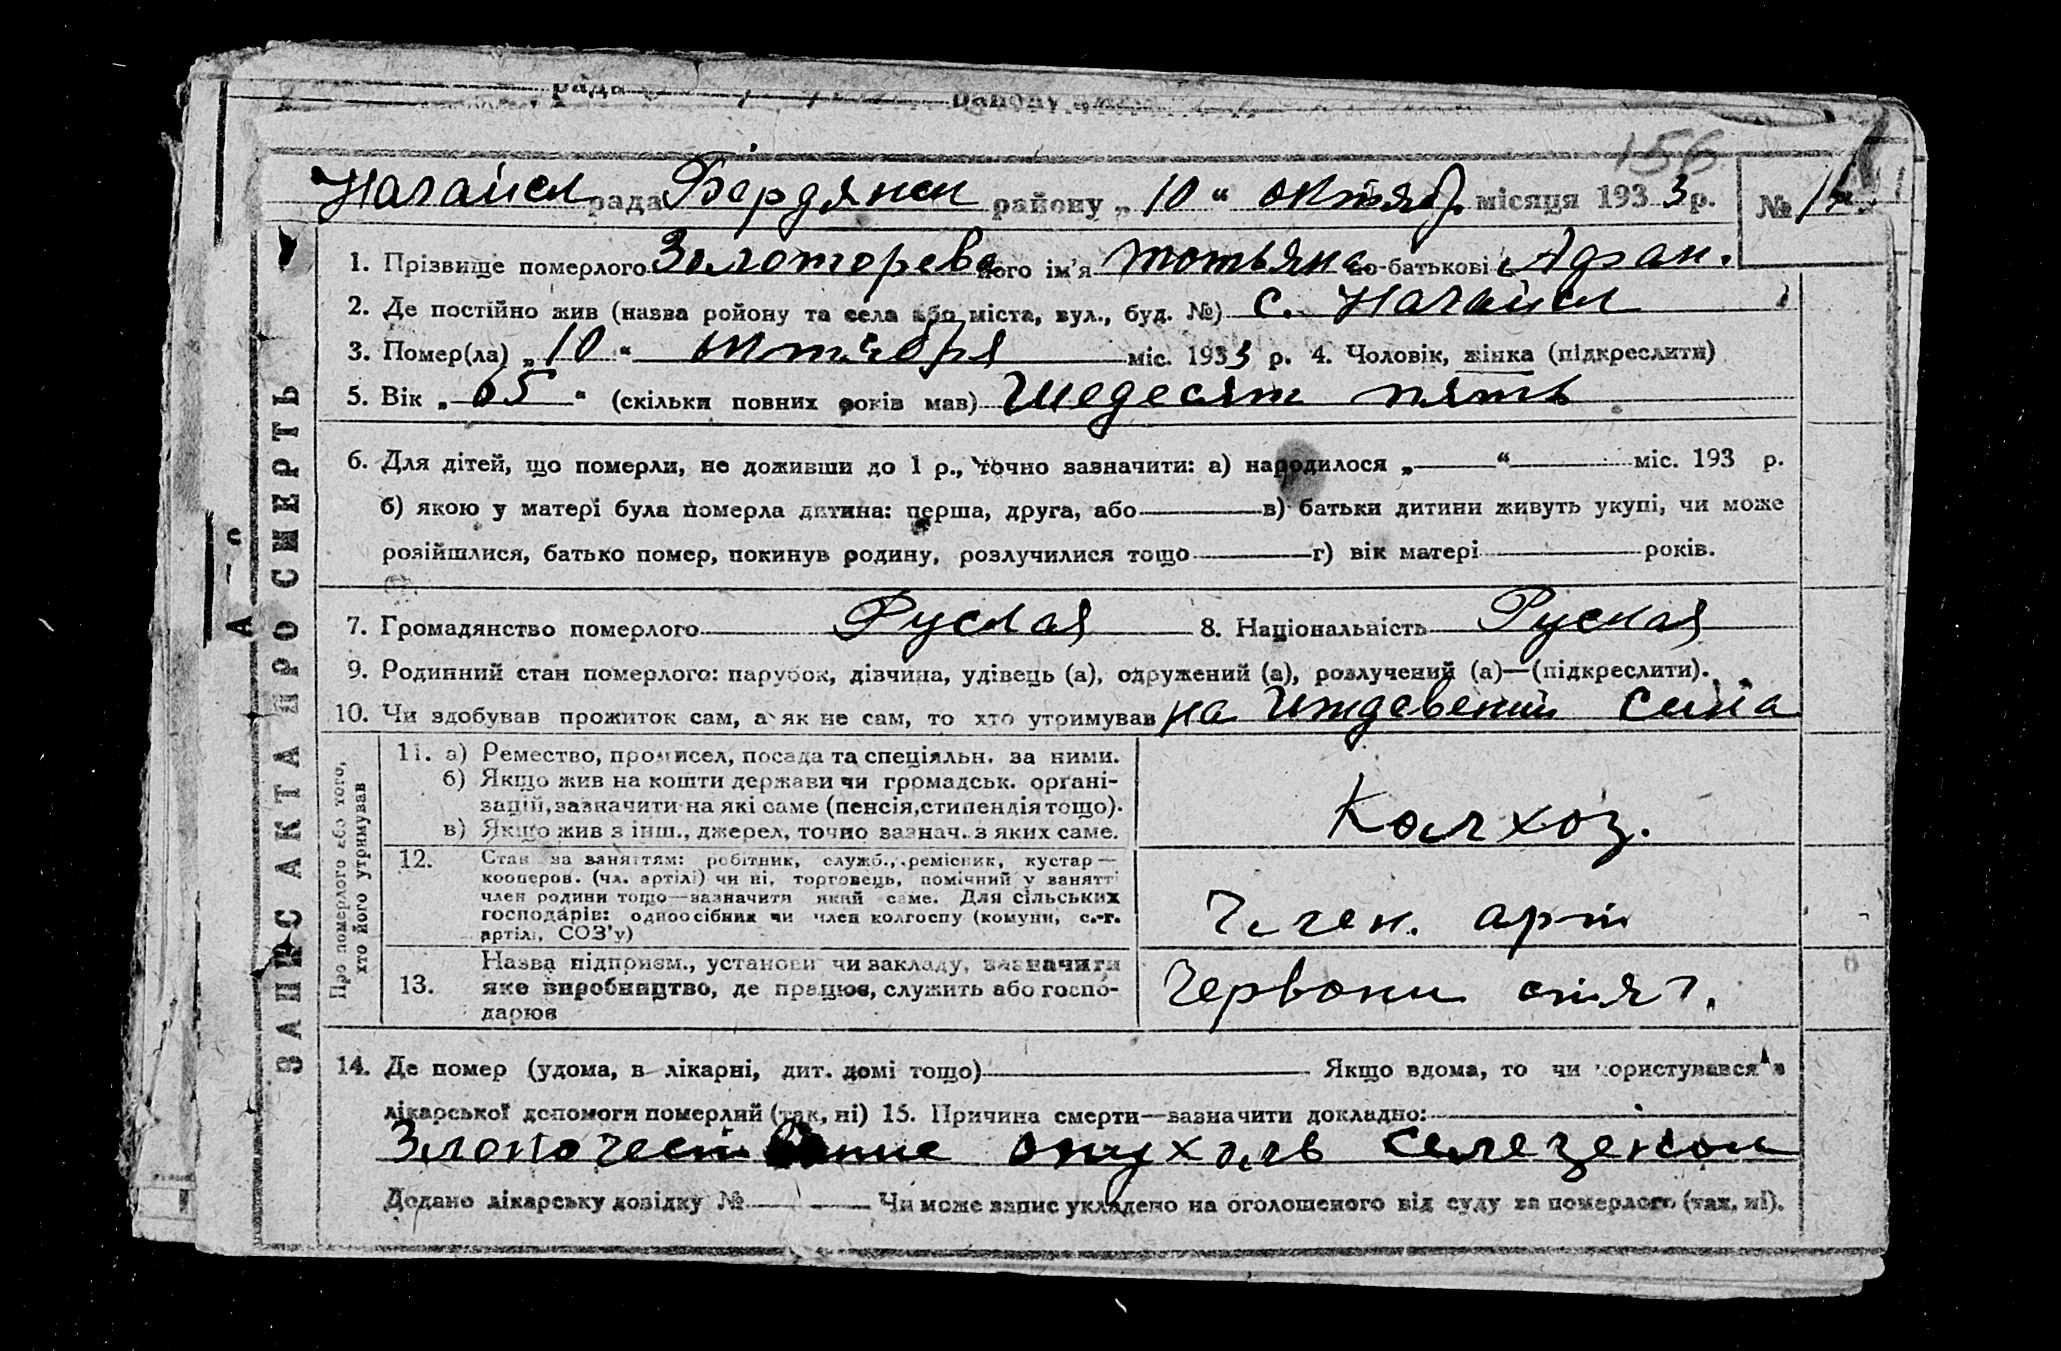 рада району
156
Нагайск рада Бердянск району „ 10 “ октябр. місяця 1933 р. №
1. Прізвище померлого Золоторева його ім'я Тотьяна по-батькові Адриан.
2. Де постійно жив (назва ройону та села або міста, вул., буд. №) с. Нагайск
3. Помер(ла) „ 10 “ октября міс. 1933 р. 4. Чоловік, жінка (підкреслити)
5. Вік „ 65 “ (скільки повних років мав) Шедесят пять
6. Для дітей, що померли, не доживши до 1 р., точно зазначити: а) народилося „ “ міс. 193 р.
б) якою у матері була померла дитина: перша, друга, або в) батьки дитини живуть укупі, чи може
розійшлися, батько помер, покинув родину, розлучилися тощо г) вік матері років.
7. Громадянство померлого Руская 8. Національність Руская
9. Родинний стан померлого: парубок, дівчина, удівець (а), одружений (а), розлучений (а)—(підкреслити).
10. Чи здобував прожиток сам, а як не сам, то хто утримував на иждевении сина
Про померлого або того, хто його утримував
11. а) Ремество, промисел, посада та спеціяльн. за ними.
б) Якщо жив на кошти держави чи громадськ. орґані-
зацій, зазначити на які саме (пенсія, стипендія тощо).
в) Якщо жив з інш., джерел, точно зазнач. з яких саме.
Колхоз.
12. Стан за заняттям: робітник, служб., ремісник, кустар —
кооперов. (чл. артілі) чи ні, торговець, помічний у занятті
член родини тощо—зазначити який саме. Для сільських
господарів: одноосібник чи член колгоспу (комуни, с.-г.
артілі, СОЗ'у)
Член. арт
13. Назва підприєм., установи чи закладу, зазначити
яке виробництво, де працює, служить або госпо-
дарює
Червони стяг.
14. Де помер (удома, в лікарні, дит. домі тощо) Якщо вдома, то чи користувався з
лікарської допомоги померлий (так, ні) 15. Причина смерти—зазначити докладно:
опухаль селезенки
Додано лікарську довідку № Чи може запис укладено на оголошеного від суду за померлого (так, ні).
ЗАПИС АКТА ПРО СМЕРТЬ
А